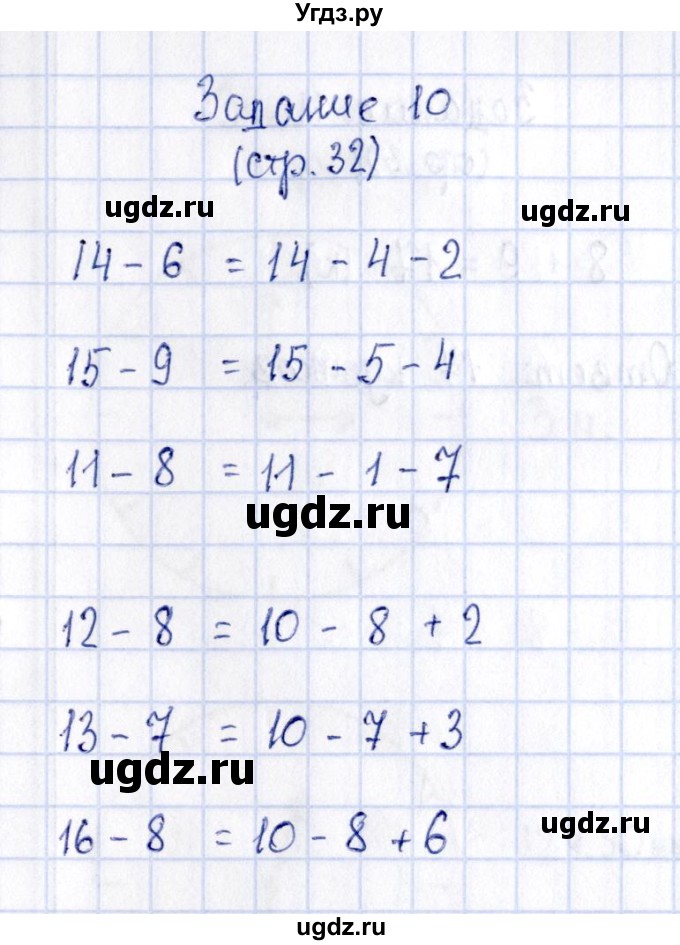 Угдз.ру
Задание 10
(стр. 32)
ugdz.ru
ugdz.ru
14 - 6 = 14 - 4 - 2
15 - 9 = 15 - 5 - 4
11 - 8 = 11 - 1 - 7
ugdz.ru
12 - 8 = 10 - 8 + 2
13 - 7 = 10 - 7 + 3
ugdz.ru
16 - 8 = 10 - 8 + 6
ugdz.ru
ugdz.ru